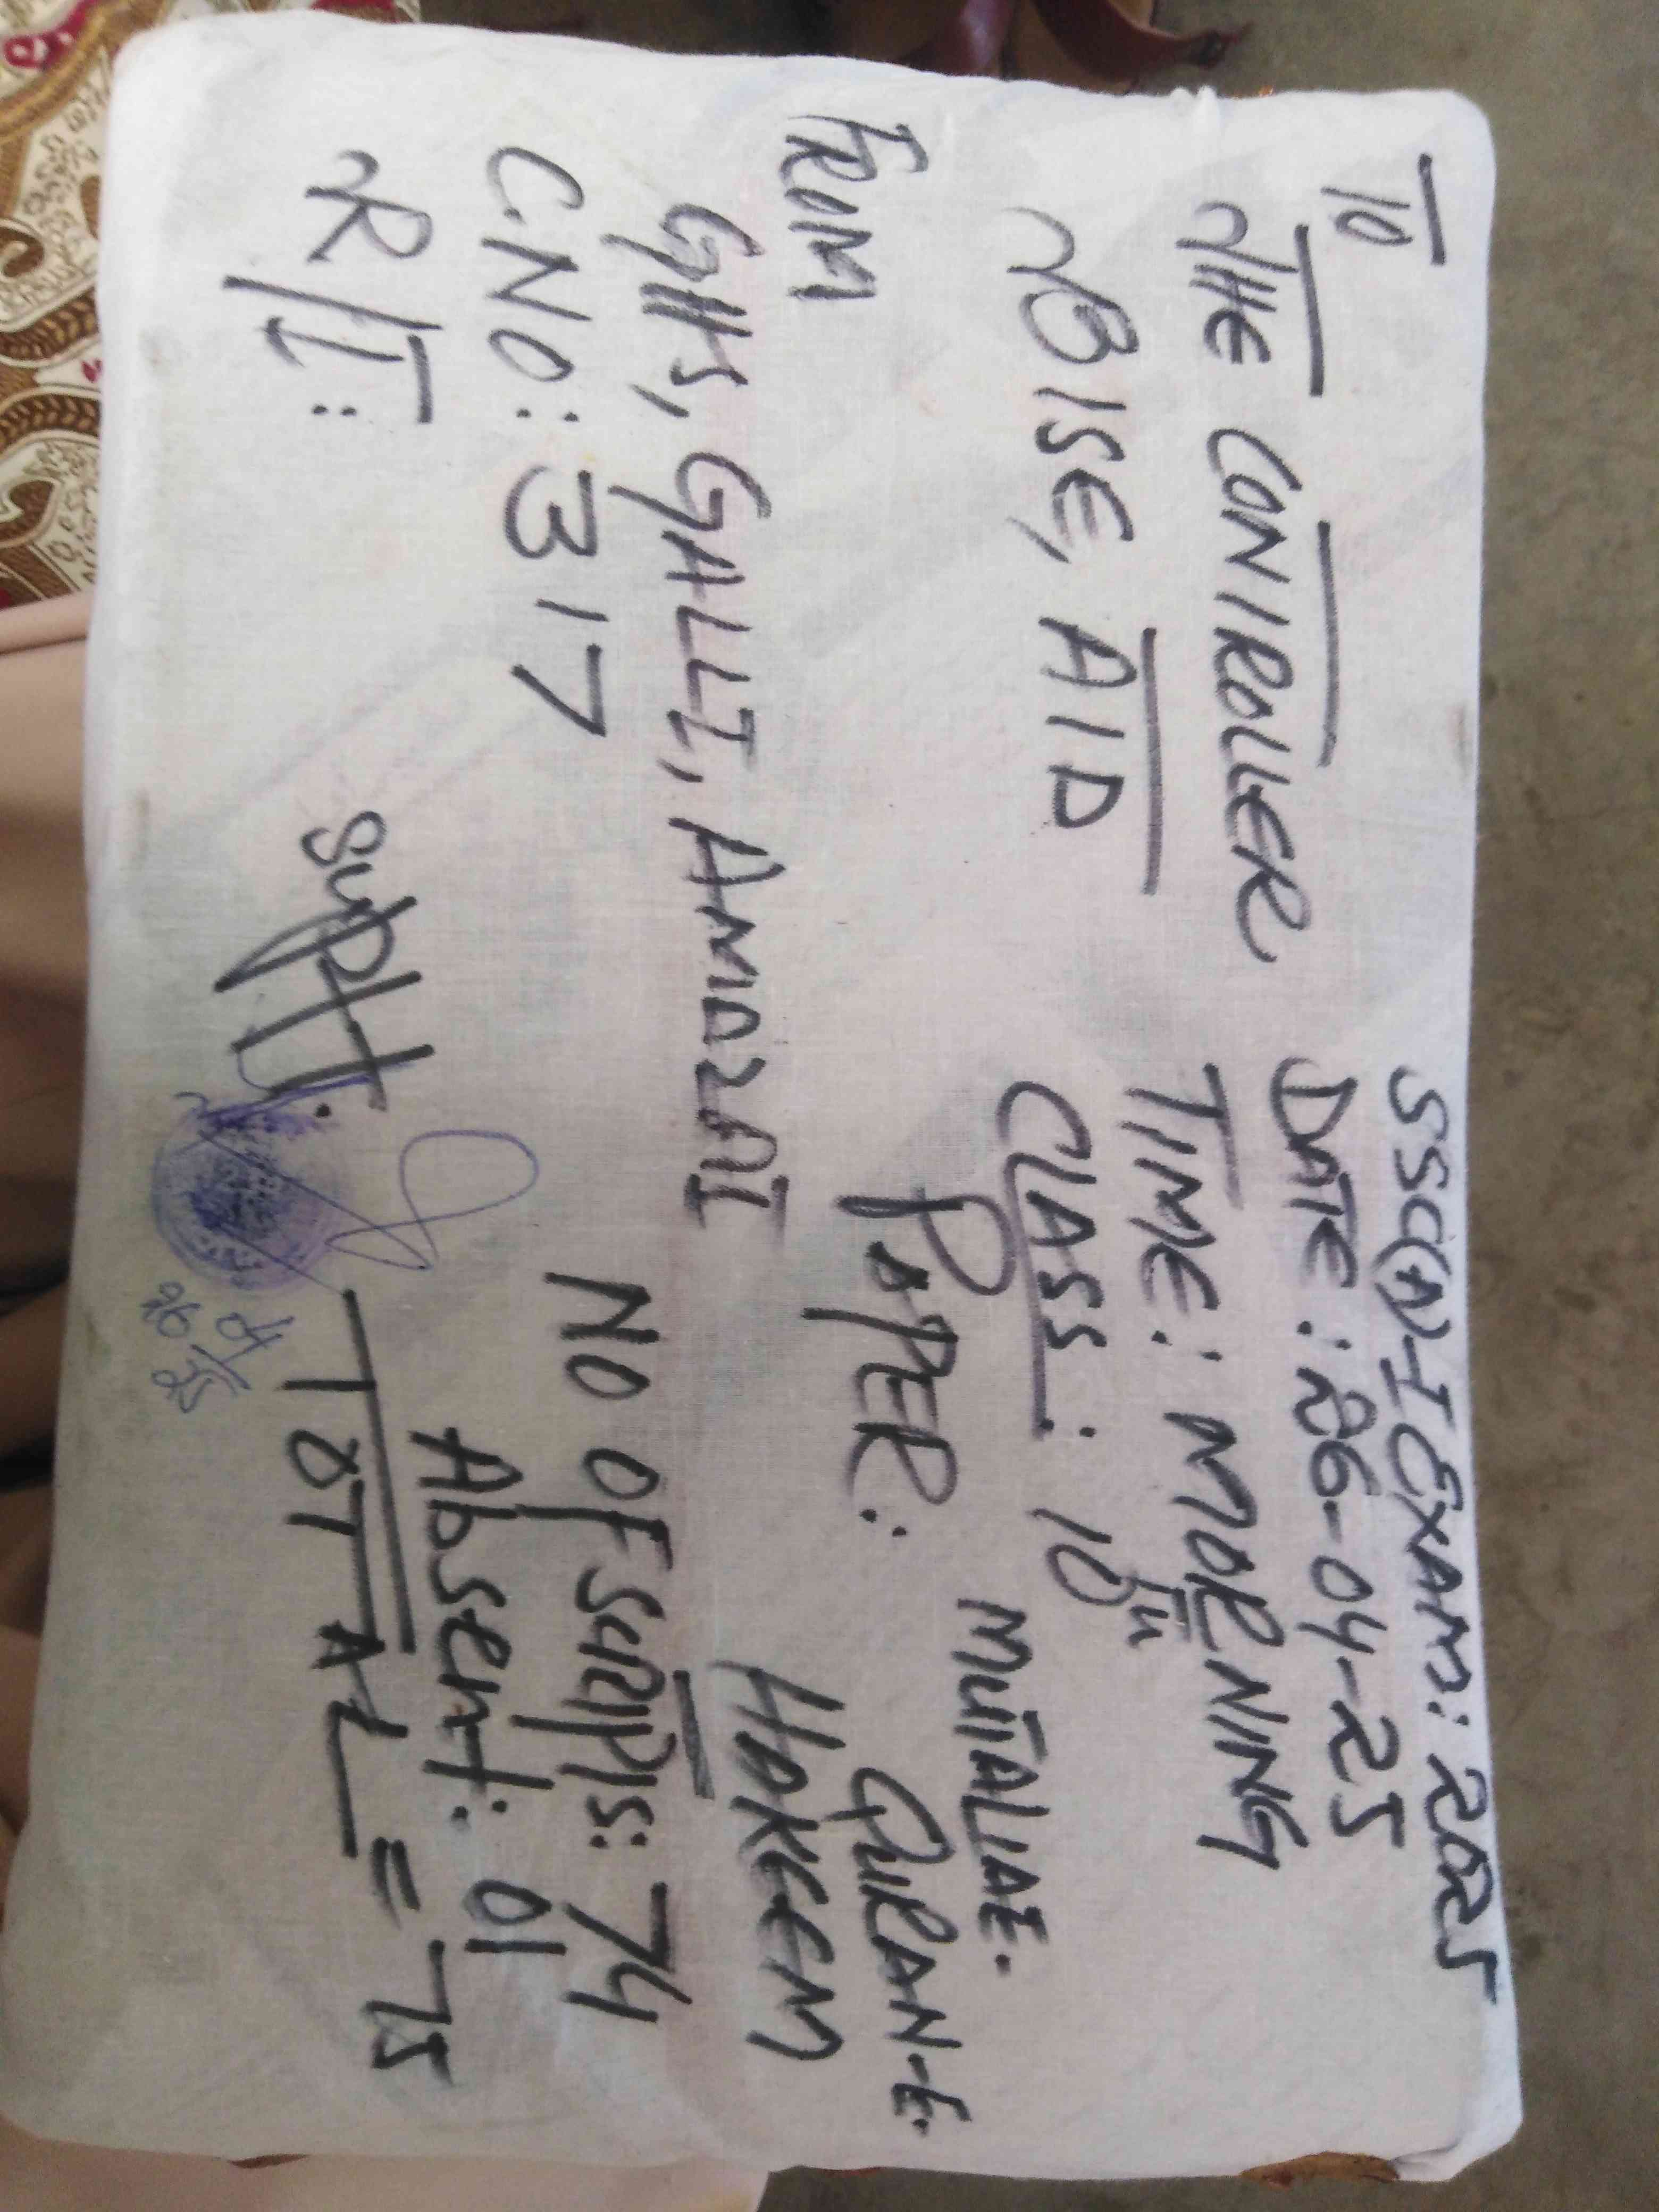 TO
THE CONTROLLER
BISE, ATD
FROM
GHS, GALLI, AMORAI
C.NO: 317
R/I:
SSC(A)-I EXAM: 2025
DATE: 26-04-25
TIME: MORNING
CLASS: 10TH
PAPER:
MUTALIAE.
QURAN-E.
HAKEEM
NO OF SCRIPTS: 74
Absent: 01
TOTAL = 75
Suptt.
26/04/25